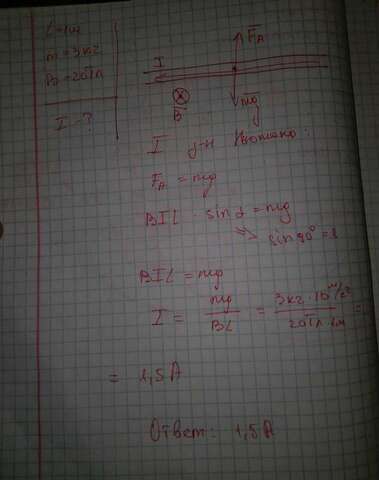 L=1м
m=3кг
B=20Тл
I-?
I
F_A
B
mg
I з-н Ньютона:
F_A = mg
BIL · sin α = mg
=> sin 90° = 1
BIL = mg
I = mg/BL = 3кг · 10 м/с²/20Тл · 1м =
= 1,5 A
Ответ: 1,5 A